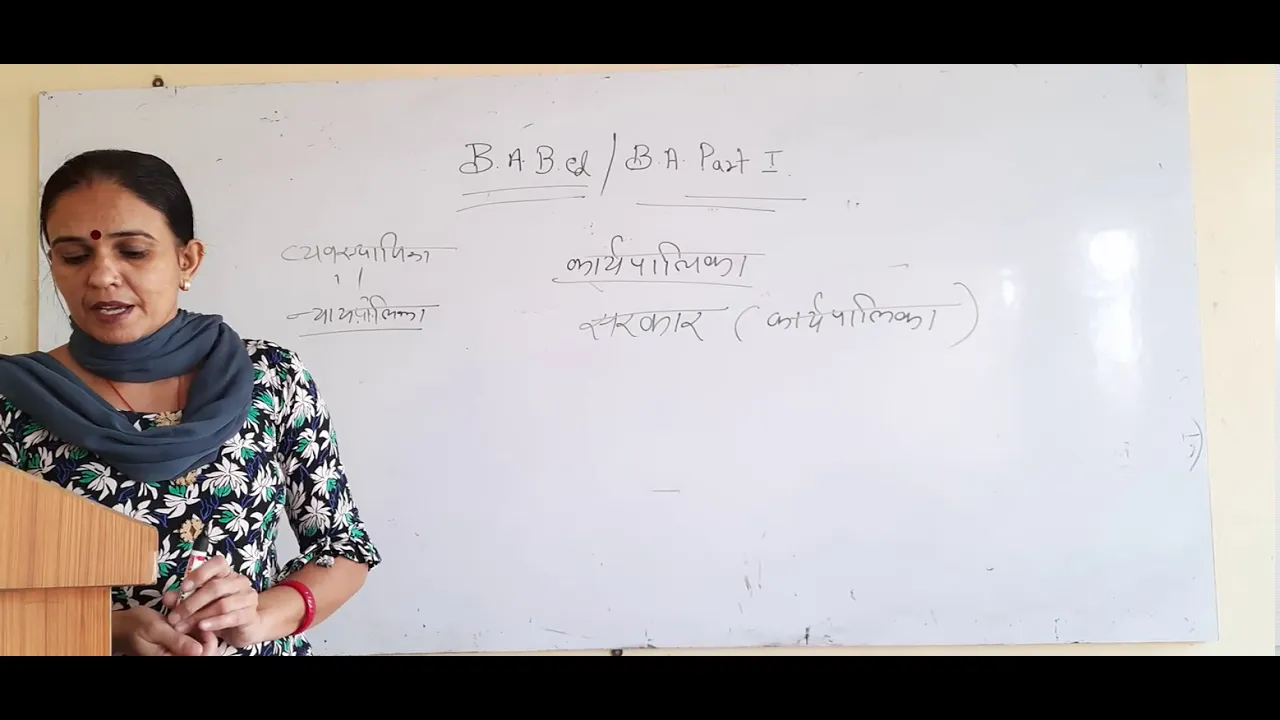 B.A.B.ed / B.A. Part I
व्यवस्थापिका
न्यायपालिका
कार्यपालिका
सरकार (कार्यपालिका)